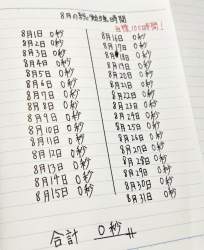 8月の総勉強時間
目標,100時間!
8月1日 0秒
8月2日 0秒
8月3日 0秒
8月4日 0秒
8月5日 0秒
8月6日 0秒
8月7日 0秒
8月8日 0秒
8月9日 0秒
8月10日 0秒
8月11日 0秒
8月12日 0秒
8月13日 0秒
8月14日 0秒
8月15日 0秒
8月16日 0秒
8月17日 0秒
8月18日 0秒
8月19日 0秒
8月20日 0秒
8月21日 0秒
8月22日 0秒
8月23日 0秒
8月24日 0秒
8月25日 0秒
8月26日 0秒
8月27日 0秒
8月28日 0秒
8月29日 0秒
8月30日 0秒
8月31日 0秒
合計 0秒